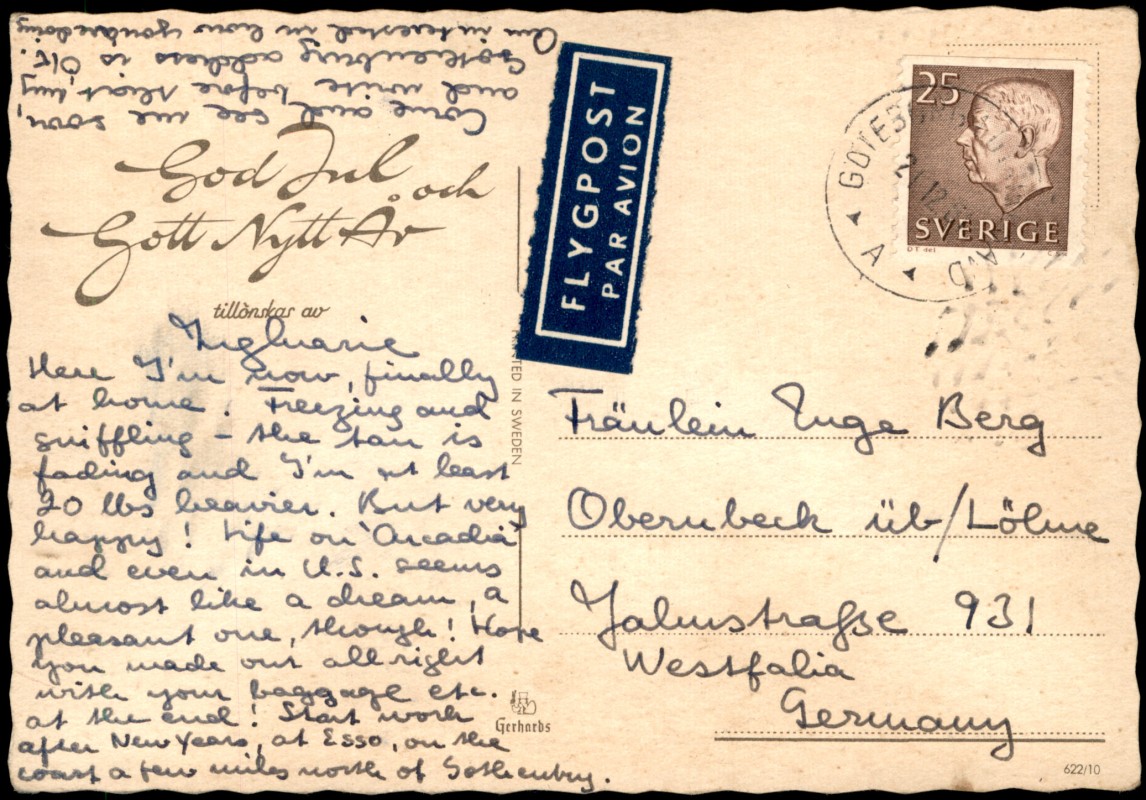 God Jul och
Gott Nytt År
tillönskas av
Ingluarie
Here I'm now, finally
at home. Freezing and
sniffling - the tan is
fading and I'm at least
20 lbs heavier. But very
happy! Life on "Arcadia"
and even in U.S. seems
almost like a dream, a
pleasant one, though! Hope
you made out all right
with your baggage etc.
at the end! Start work
after New Years, at Esso, on the
coast a few miles north of Gothenburg.
Come and see me soon,
and write before that, my
Gothenburg address is O.K.
Am interested in how you're doing
FLYGPOST
PAR AVION
TED IN SWEDEN
Gerhards
25
SVERIGE
GÖTEB
A
Fräulein Inge Berg
Obernbeck üb/Löhne
Jahnstraße 931
Westfalia
Germany
622/10